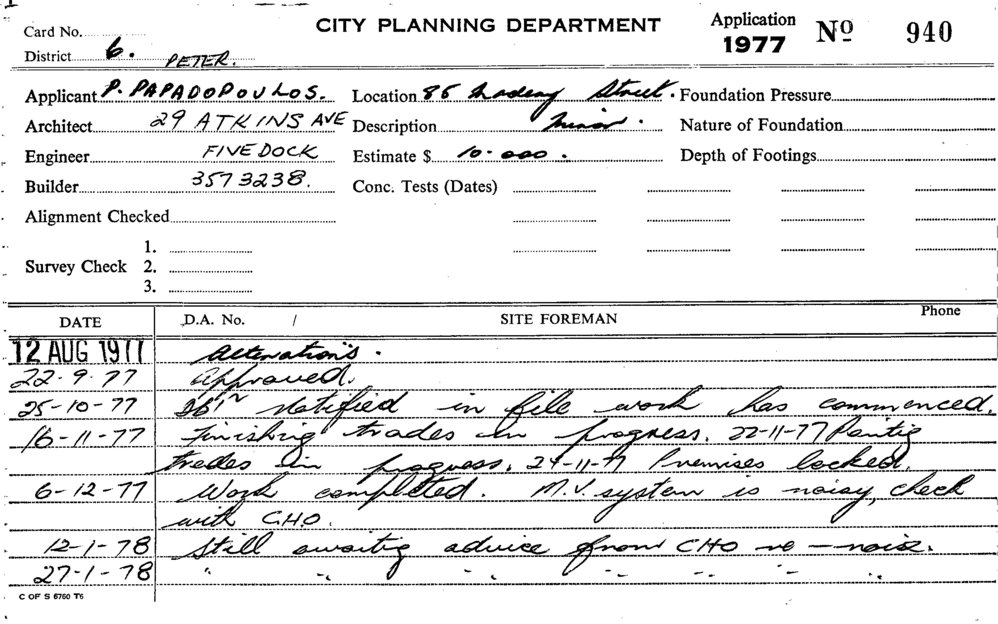 CITY PLANNING DEPARTMENT
Application 1977 Nº 940
Card No.
District 6. PETER.
Applicant P. PAPADOPOULOS. Location 86 Street. Foundation Pressure
Architect 29 ATKINS AVE Description Minor. Nature of Foundation
Engineer FIVEDOCK Estimate $ 10.000. Depth of Footings
Builder 3573238. Conc. Tests (Dates)
Alignment Checked
1.
Survey Check 2.
3.
DATE D.A. No. / SITE FOREMAN Phone
12 AUG 1977 Alterations.
22-9-77 Approved.
25-10-77 Notified in file work has commenced.
16-11-77 Finishing trades in progress. 22-11-77
trades in progress. 24-11-77 Premises locked.
6-12-77 Work completed. M.V. system is noisy, check
with CHO.
12-1-78 Still awaiting advice from CHO re-noise.
27-1-78 " " " " " " " "
C OF S 6760 T6